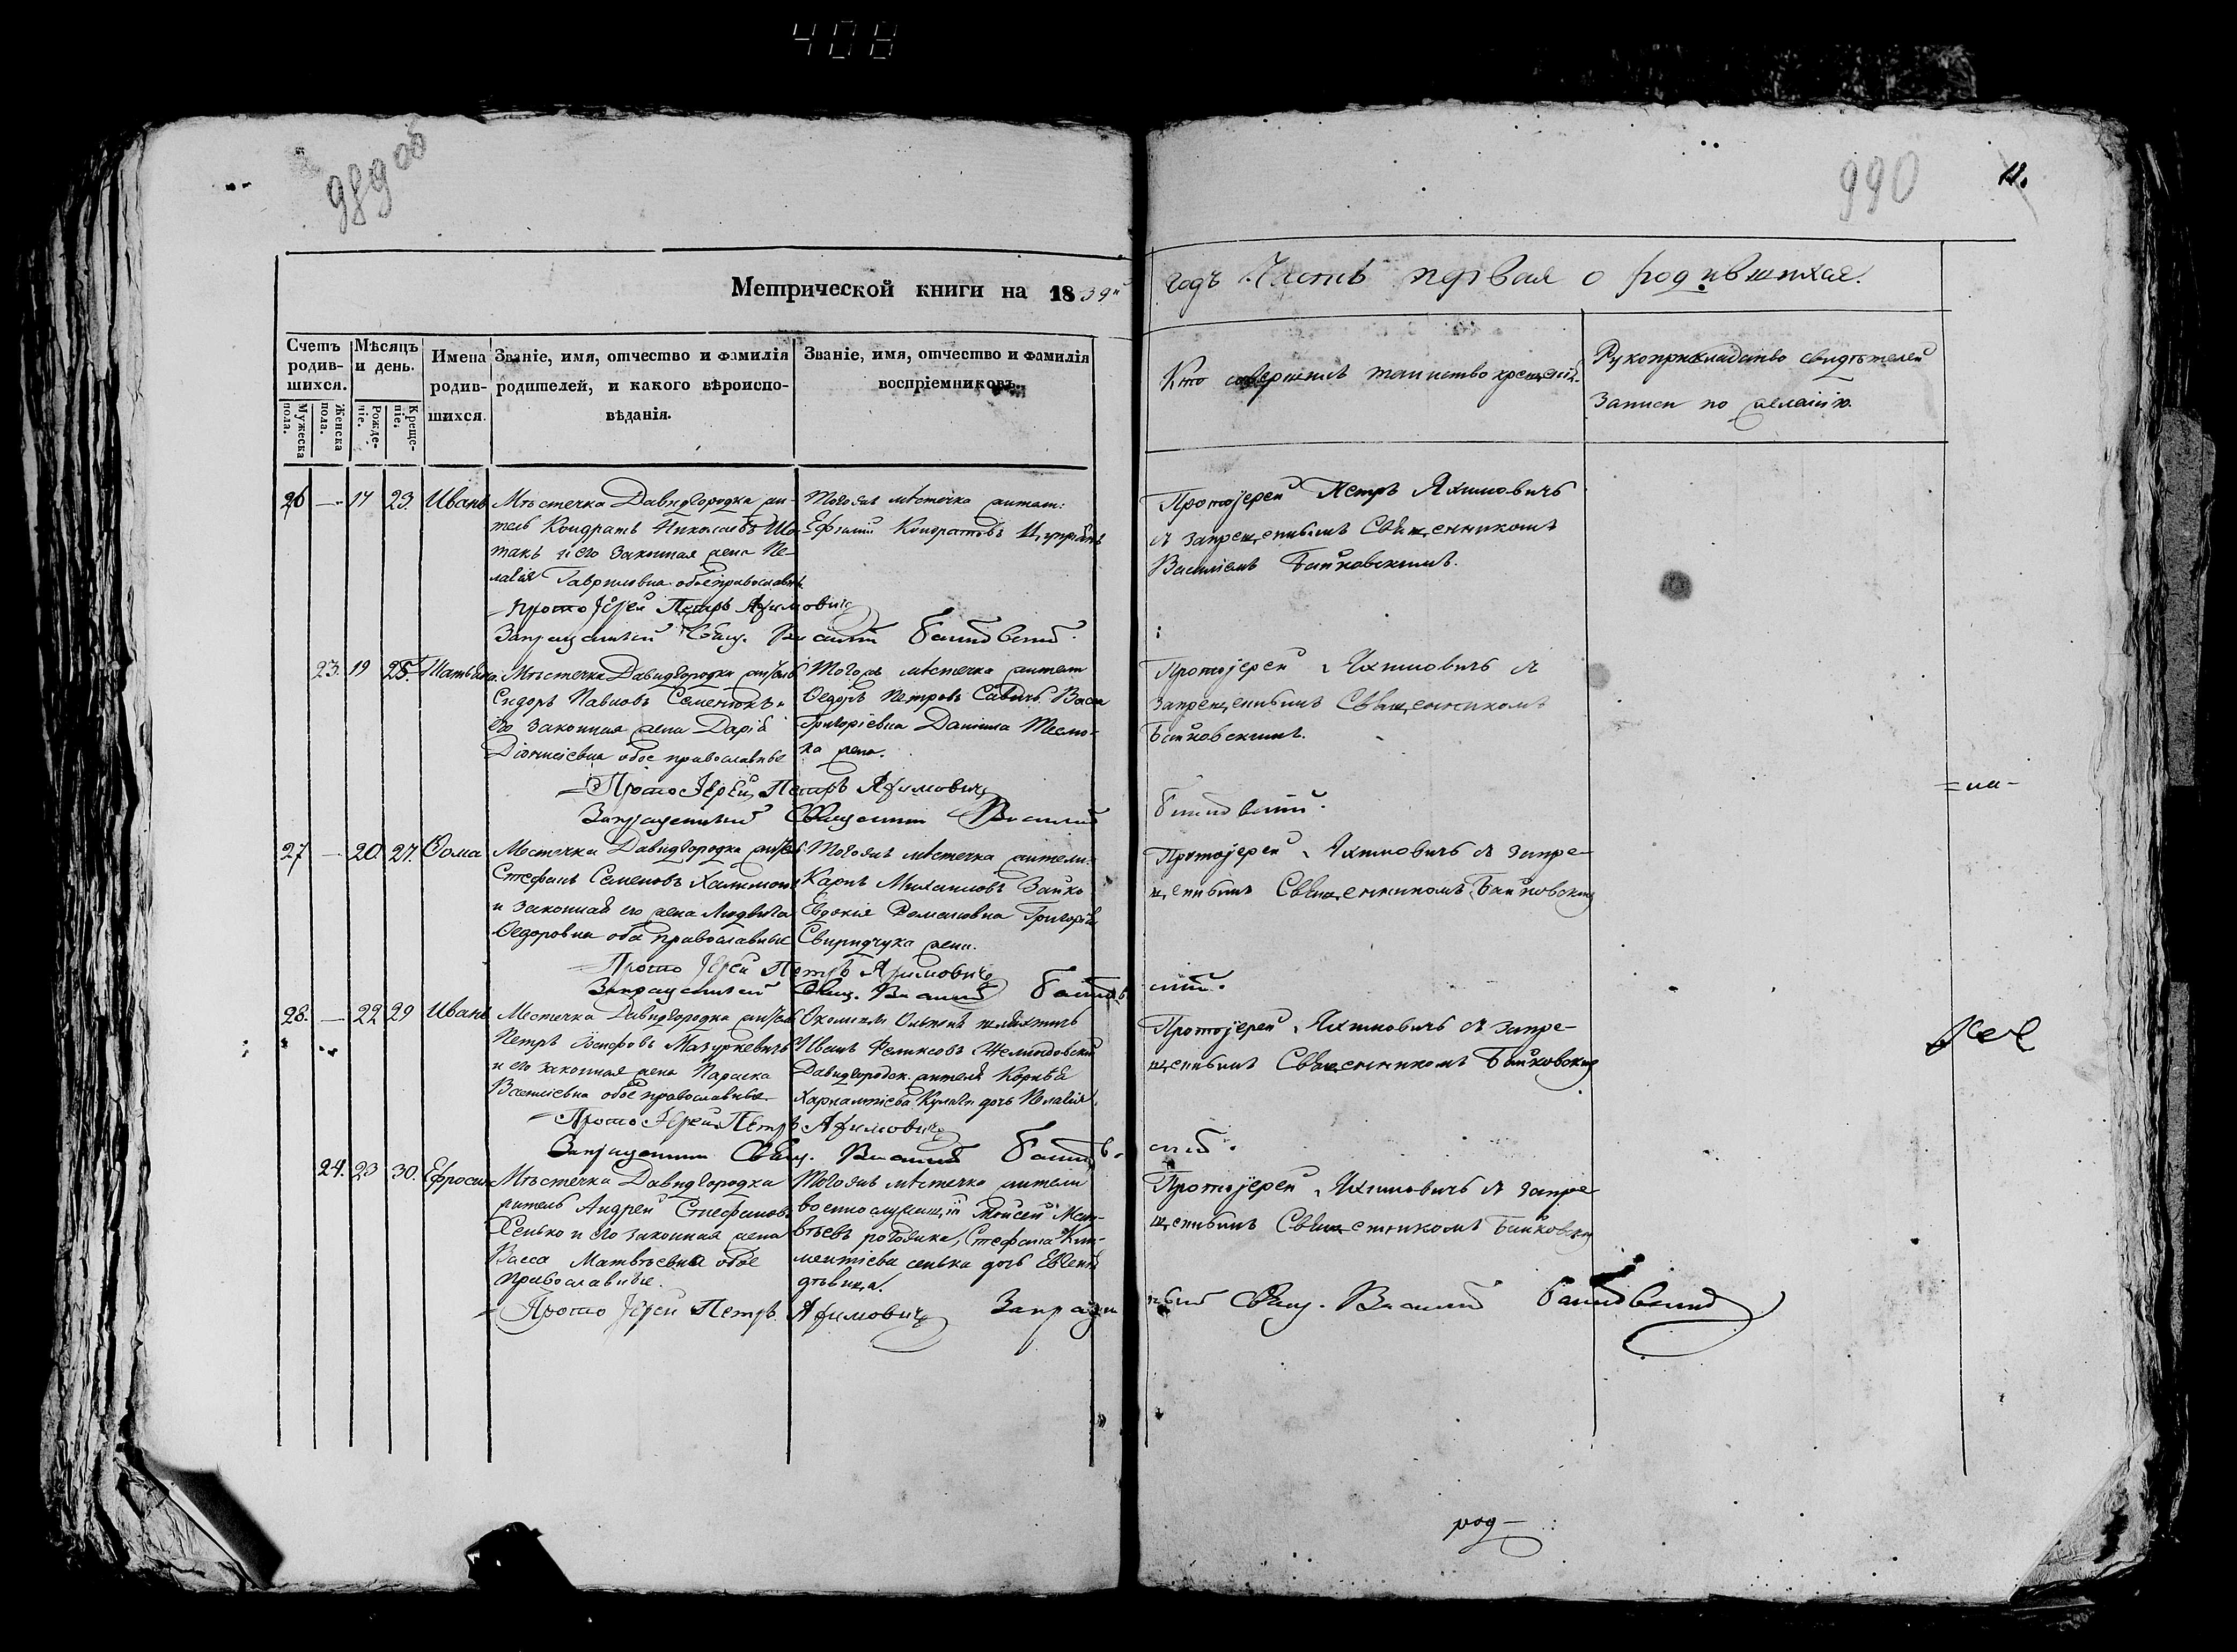 408
989 об
990
11.
Метрической книги на 1839й
годъ Часть первая о родившихся.
Счетъ родив-шихся.
Мужеска пола.
Женска пола.
Мѣсяцъ и день.
Рожде-ніе.
Креще-ніе.
Имена родив-шихся.
Званіе, имя, отчество и фамилія
родителей, и какого вѣроиспо-
вѣданія.
Званіе, имя, отчество и фамилія
воспріемниковъ.
Кто совершилъ таинство крещенія.
Рукоприкладство свидѣтелей
записи по желанію.
26 — 17 23. Иванъ
Мѣстечка Давидгородка жи-
тель Кондратъ Николаевъ Шо-
такъ и его законная жена Пе-
лагія Гавриловна обое православные
Тогожъ мѣстечка жители:
Кондратовъ
Протоіерей Петръ Яхимовичъ
съ запрещеннымъ Священникомъ
Василіемъ Байковскимъ.
Протоіерей Петръ Яхимовичъ
Запрещенный Свящ. Василій Байковскій.
23. 19 25. Татьяна
Мѣстечка Давидгородка житель
Сидоръ Павловъ Семенюкъ и
его законная жена Дарія
Діонисіевна обое православные
Тогожъ мѣстечка жители
Ѳедоръ Петровъ Савичъ Васса
Григоріевна Даніила
жена.
Протоіерей Яхимовичъ съ
запрещеннымъ Священникомъ
Байковскимъ.
Протоіерей Петръ Яхимовичъ
Запрещенный Священникъ Василій Байковскій.
27 — 20 27. Ѳома
Местечка Давидгородка житель
Стефанъ Семеновъ
и законная его жена Людвига
Ѳедоровна обое православные
Тогожъ мѣстечка жители:
Карпъ Михаиловъ Зайко
Евдокія Романовна Григорія
Свиридчука жена.
Протоіерей Яхимовичъ съ запре-
щеннымъ Священникомъ Байковскимъ
Протоіерей Петръ Яхимовичъ
Запрещенный Свящ. Василій Байковскій.
28. — 22 29 Иванъ
Местечка Давидгородка житель
Петръ Іосифовъ Мазуркевичъ
и его законная жена Параска
Василіевна обое православные
Околицы Ольпень шляхтичъ
Иванъ Феликсовъ
Давидгородск. жителя Корнѣя
дочь Пелагія.
Протоіерей Яхимовичъ съ запре-
щеннымъ Священникомъ Байковскимъ
Протоіерей Петръ Яхимовичъ
Запрещенный Свящ. Василій Байковскій.
24. 23 30. Ефросин
Мѣстечка Давидгородка
житель Андрей Стефановъ
Сенько и его законная жена
Васса Матвѣевна обое
православные.
Тогожъ мѣстечка жители
военнослужащій Моисей Мат-
вѣевъ Стефана Кли-
ментіева сенька дочь Евгенія
дѣвица.
Протоіерей Яхимовичъ съ запре-
щеннымъ Священникомъ Байковским
Протоіерей Петръ Яхимовичъ Запрещен
ный Свящ. Василій Байковскій
род—